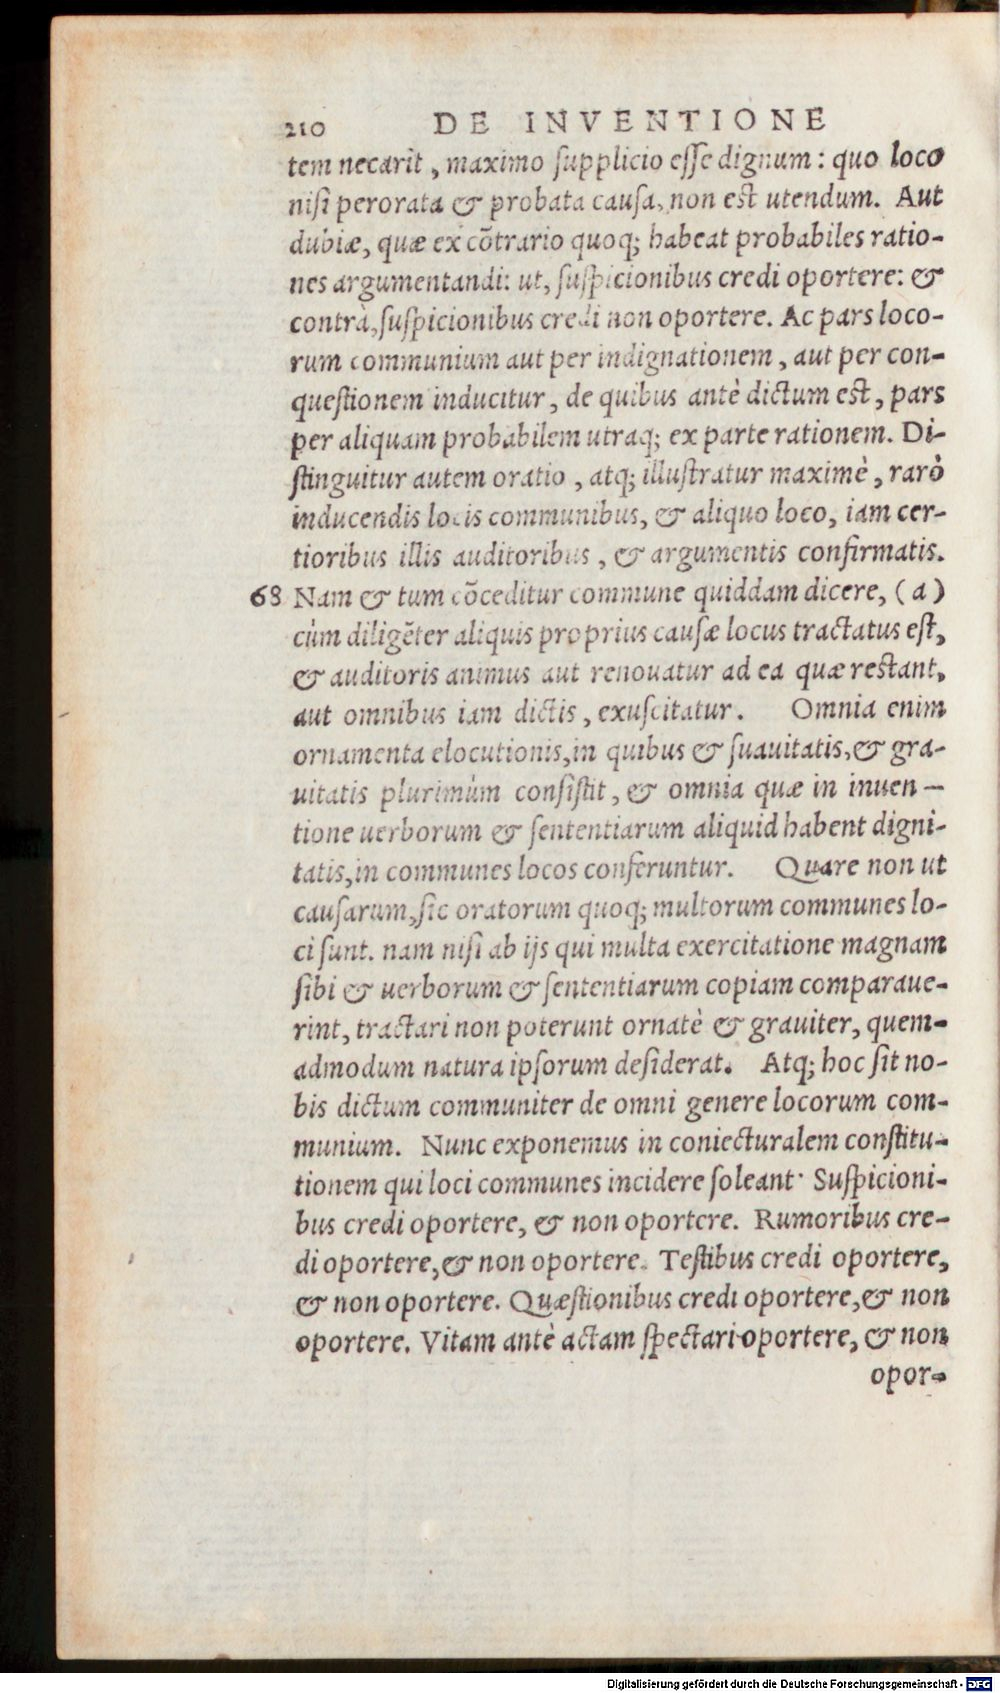 210 DE INVENTIONE
tem necarit, maximo supplicio esse dignum: quo loco
nisi perorata & probata causa, non est utendum. Aut
dubiæ, quæ ex cõtrario quoq; habeat probabiles ratio-
nes argumentandi: ut, suspicionibus credi oportere: &
contrà, suspicionibus credi non oportere. Ac pars loco-
rum communium aut per indignationem, aut per con-
questionem inducitur, de quibus antè dictum est, pars
per aliquam probabilem utraq; ex parte rationem. Di-
stinguitur autem oratio, atq; illustratur maximè, rarò
inducendis locis communibus, & aliquo loco, iam cer-
tioribus illis auditoribus, & argumentis confirmatis.
68 Nam & tum cõceditur commune quiddam dicere, (a)
cùm diligẽter aliquis proprius causæ locus tractatus est,
& auditoris animus aut renouatur ad ea quæ restant,
aut omnibus iam dictis, exuscitatur. Omnia enim
ornamenta elocutionis, in quibus & suauitatis, & gra-
uitatis plurimùm consistit, & omnia quæ in inuen-
tione uerborum & sententiarum aliquid habent digni-
tatis, in communes locos conferuntur. Quare non ut
causarum, sic oratorum quoq; multorum communes lo-
ci sunt. nam nisi ab ijs qui multa exercitatione magnam
sibi & uerborum & sententiarum copiam comparaue-
rint, tractari non poterunt ornatè & grauiter, quem-
admodum natura ipsorum desiderat. Atq; hoc sit no-
bis dictum communiter de omni genere locorum com-
munium. Nunc exponemus in coniecturalem constitu-
tionem qui loci communes incidere soleant. Suspicioni-
bus credi oportere, & non oportere. Rumoribus cre-
di oportere, & non oportere. Testibus credi oportere,
& non oportere. Quæstionibus credi oportere, & non
oportere. Vitam antè actam spectari oportere, & non
opor-
Digitalisierung gefördert durch die Deutsche Forschungsgemeinschaft - DFG